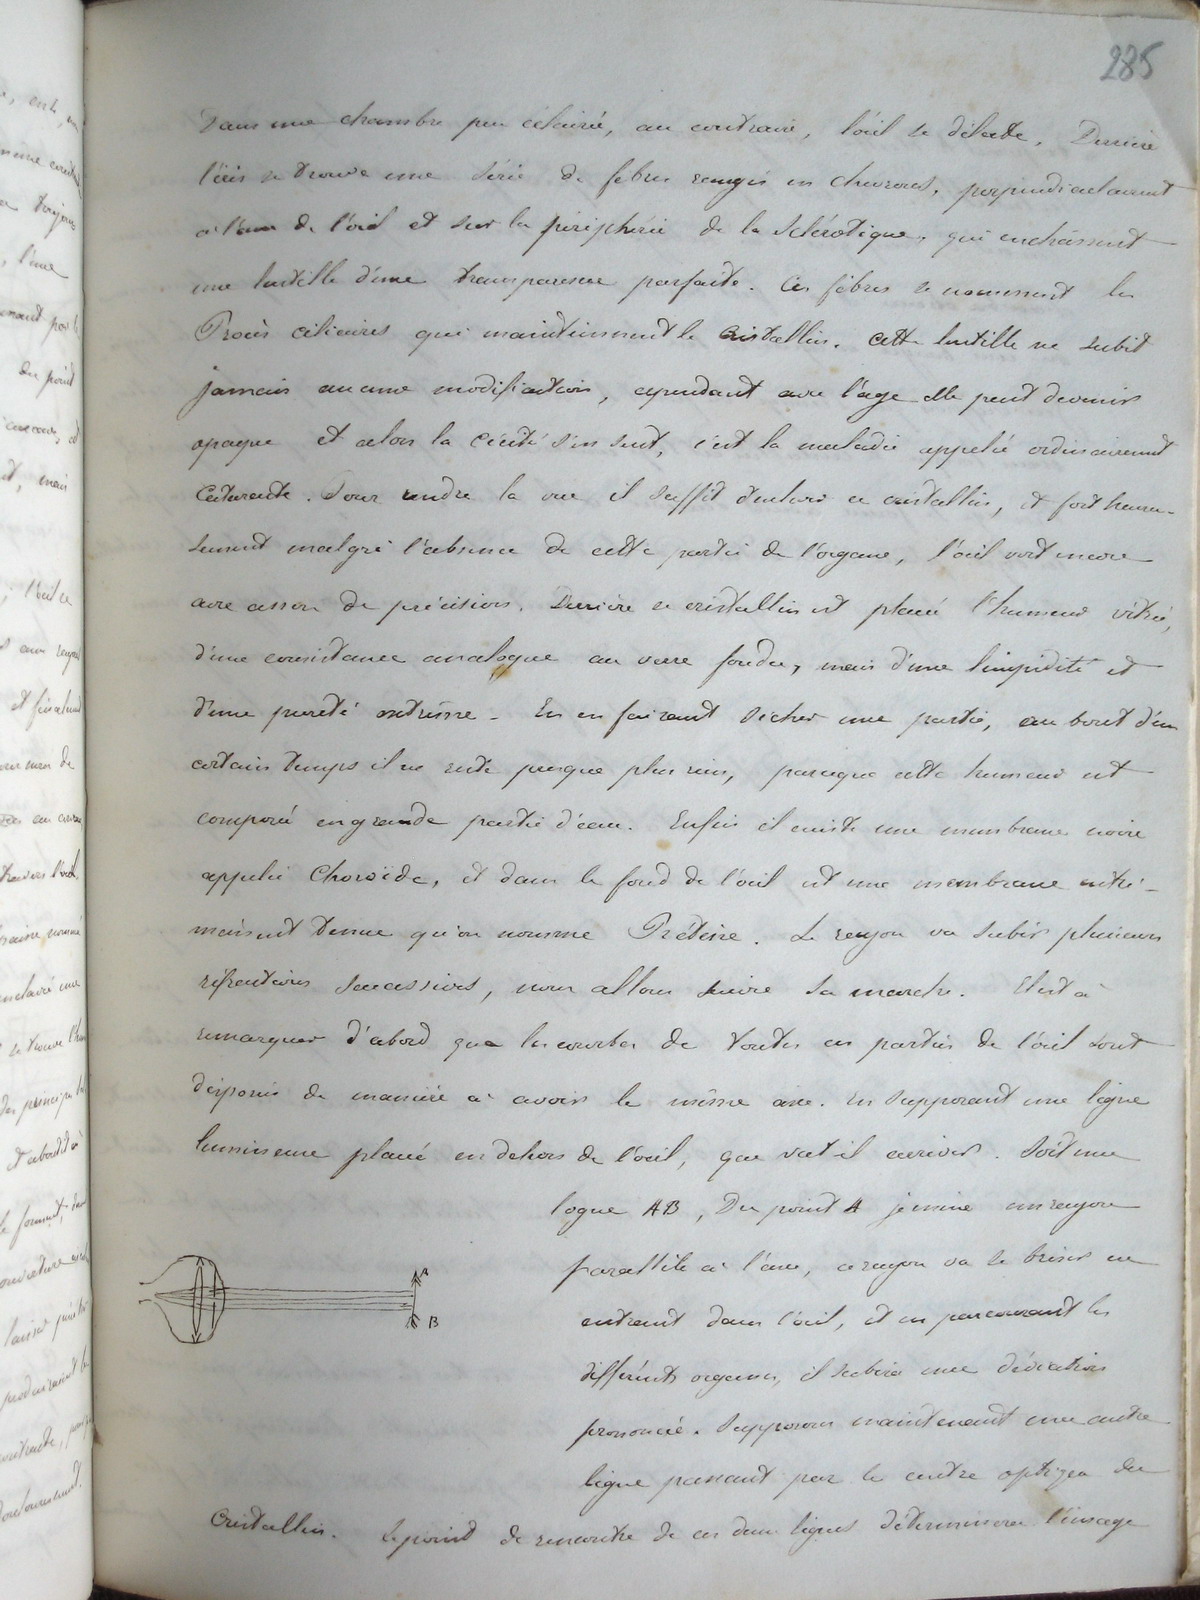 285
Dans une chambre peu éclairée, au contraire, l'œil se dilate. Derrière
l'iris se trouve une série de fibres rangés en chevrons, perpendiculairement
à l'axe de l'œil et sur la périphérie de la Sclérotique, qui enchâssent
une lentille d'une transparence parfaite. Ces fibres se nomment les
Procès ciliaires qui maintiennent le Cristallin. Cette lentille ne subit
jamais aucune modification, cependant avec l'âge elle peut devenir
opaque et alors la Cécité s'en suit, c'est la maladie appelée ordinairement
Cataracte. Pour rendre la vue il suffit d'enlever ce cristallin, et fort heureu-
sement malgré l'absence de cette partie de l'organe, l'œil voit encore
avec assez de précision. Derrière ce cristallin est placé l'humeur vitrée,
d'une consistance analogue au verre fondu, mais d'une limpidité et
d'une pureté extrême. En en faisant sécher une partie, au bout d'un
certain temps il ne reste presque plus rien, parceque cette humeur est
composé en grande partie d'eau. Enfin il existe une membrane noire
appelée Choroïde, et dans le fond de l'œil est une membrane extrê-
mement tenue qu'on nomme Rétine. Le rayon va subir plusieurs
réfractions successives, nous allons suivre sa marche. Il est à
remarquer d'abord que les courbes de toutes ces parties de l'œil sont
disposées de manière à avoir le même axe. En supposant une ligne
lumineuse placé en dehors de l'œil, que va t il arriver. Soit une
ligne AB, Du point A je mène un rayon
parallèle à l'axe, ce rayon va se briser en
entrant dans l'œil, et en parcourant les
différents organes, il subira une déviation
prononcée. Supposons maintenant une autre
ligne passant par le centre optique du
A
B
Cristallin. Le point de rencontre de ces deux lignes déterminera l'image